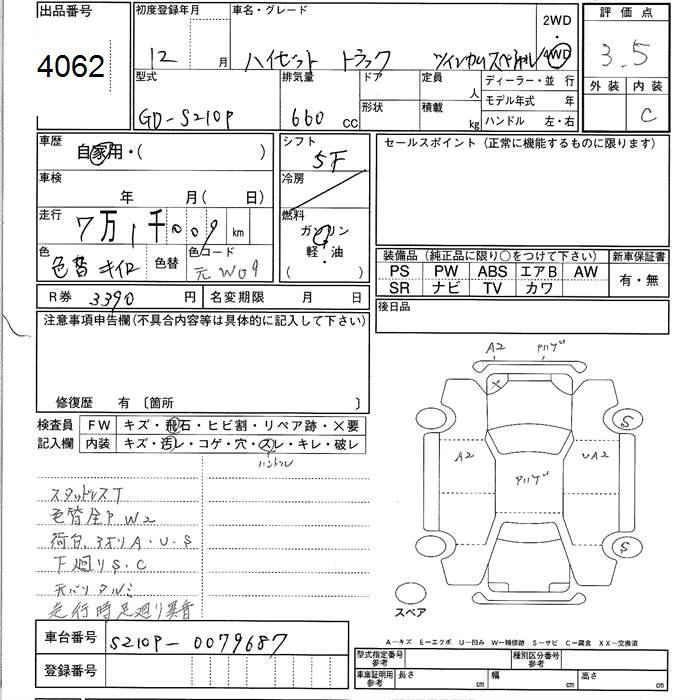 出品番号
4062
初度登録年月 12 月
車名・グレード
ハイゼット トラック ツインカムスペシャル
2WD
4WD
評価点
3.5
外装 内装
C
型式
GD-S210P
排気量
660 cc
ドア
形状
定員 人
積載 kg
ディーラー・並 行
モデル年式 年
ハンドル 左・右
車歴
自家用・( )
シフト
5F
セールスポイント (正常に機能するものに限ります)
車検
年 月( 日)
冷房
走行
7万1千009 km
燃料
ガソリン
軽・油
( )
色
色替 キイロ
色替
色コード
元W09
装備品 (純正品に限り○をつけて下さい) 新車保証書
PS PW ABS エアB AW 有・無
SR ナビ TV カワ
R券 3390 円
名変期限 月 日
後日品
注意事項申告欄(不具合内容等は具体的に記入して下さい)
修復歴 有 〔箇所 〕
検査員
記入欄
FW キズ・飛石・ヒビ割・リペア跡・×要
内装 キズ・汚レ・コゲ・穴・スレ・キレ・破レ
ハンドル
スタッドレスT
色替全P W2
荷台 3方リ A・U・S
下廻リS・C
天バリタルミ
走行時足廻リ異音
A2
アリゲ
×
A2
アリゲ
UA2
S
S
スペア
A−キズ E−エクボ U−凹み W−補修跡 S−サビ C−腐食 XX−交換済
車台番号 S210P-0079687
登録番号
型式指定番号
参考
種別区分番号
参考
車庫証明用
参考
長さ cm
幅 cm
高さ cm